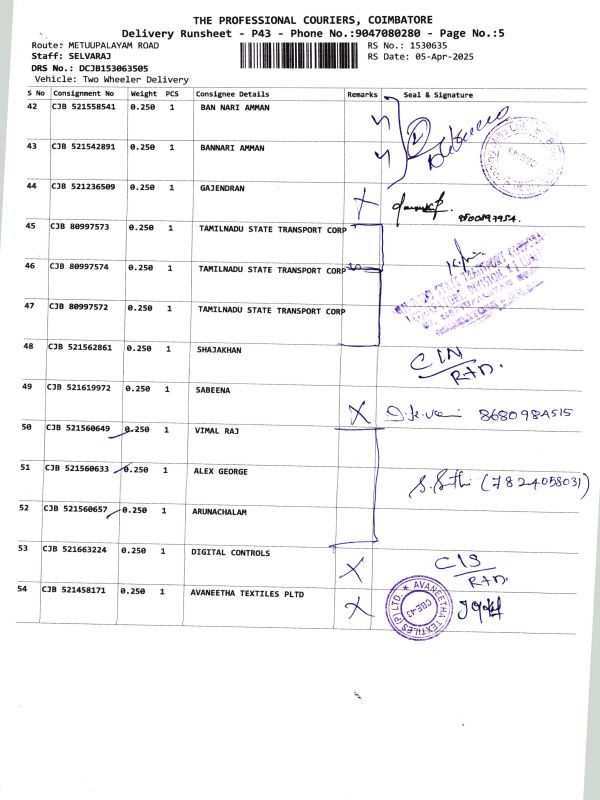 THE PROFESSIONAL COURIERS, COIMBATORE
Delivery Runsheet - P43 - Phone No.:9047080280 - Page No.:5
Route: METUUPALAYAM ROAD RS No.: 1530635
Staff: SELVARAJ RS Date: 05-Apr-2025
DRS No.: DCJB153063505
Vehicle: Two Wheeler Delivery
S No Consignment No Weight PCS Consignee Details Remarks Seal & Signature
42 CJB 521558541 0.250 1 BAN NARI AMMAN
43 CJB 521542891 0.250 1 BANNARI AMMAN
44 CJB 521236509 0.250 1 GAJENDRAN X
9800897954.
45 CJB 80997573 0.250 1 TAMILNADU STATE TRANSPORT CORP
46 CJB 80997574 0.250 1 TAMILNADU STATE TRANSPORT CORP
47 CJB 80997572 0.250 1 TAMILNADU STATE TRANSPORT CORP
48 CJB 521562861 0.250 1 SHAJAKHAN
49 CJB 521619972 0.250 1 SABEENA X 8680984515
50 CJB 521560649 0.250 1 VIMAL RAJ
51 CJB 521560633 0.250 1 ALEX GEORGE (7824058031)
52 CJB 521560657 0.250 1 ARUNACHALAM
53 CJB 521663224 0.250 1 DIGITAL CONTROLS X
54 CJB 521458171 0.250 1 AVANEETHA TEXTILES PLTD X
AVANEETHA TEXTILES (P) LTD.
CBE-43